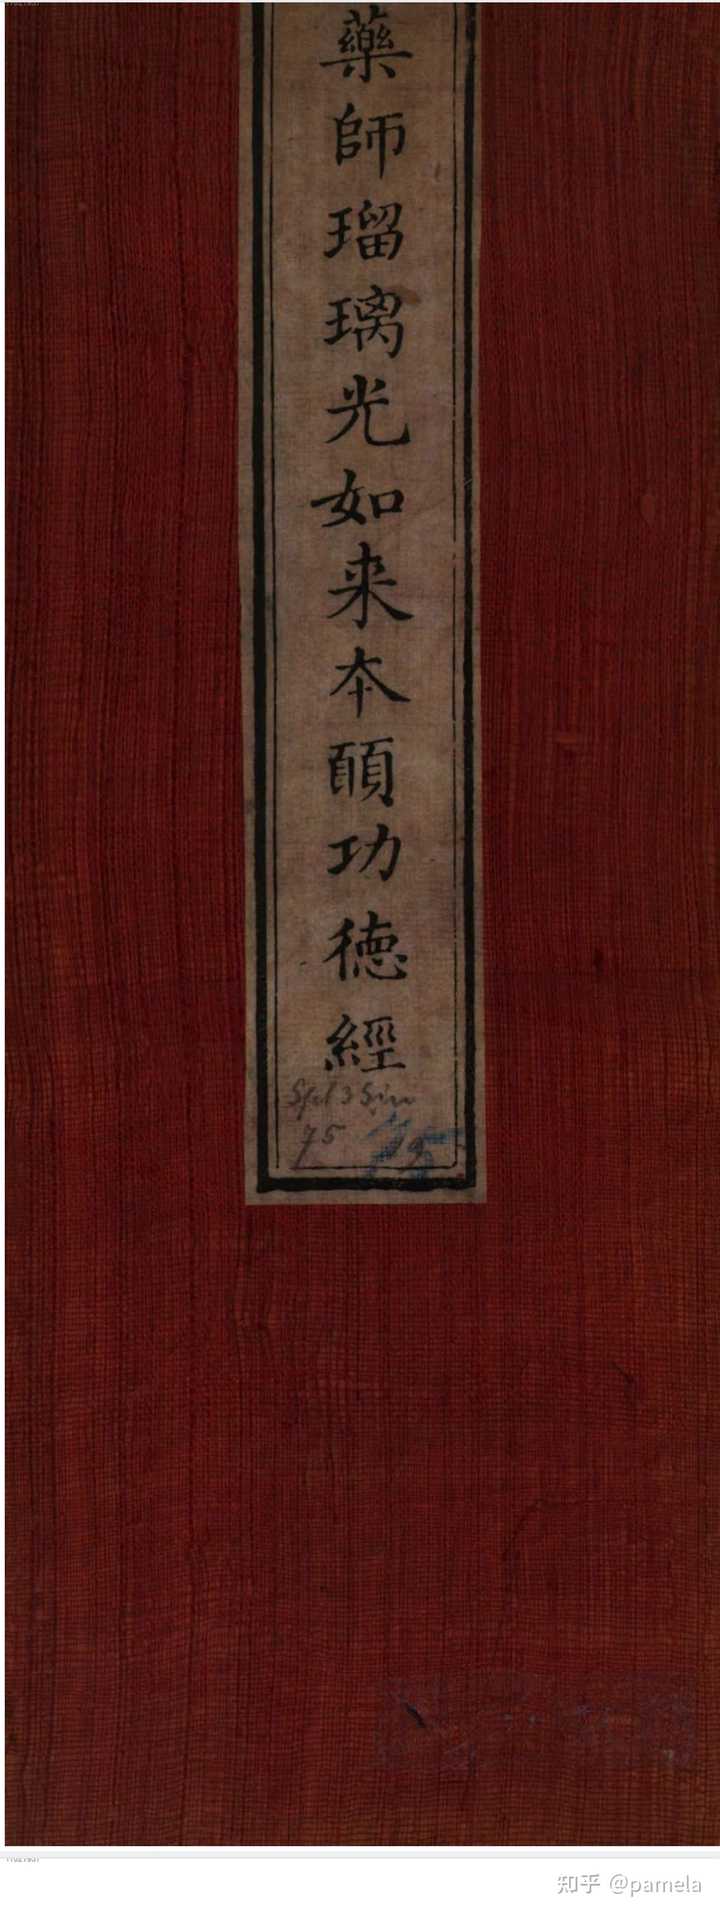 藥師瑠璃光如来本願功德經
Spl 3 Sin
75
75
知乎 @pamela